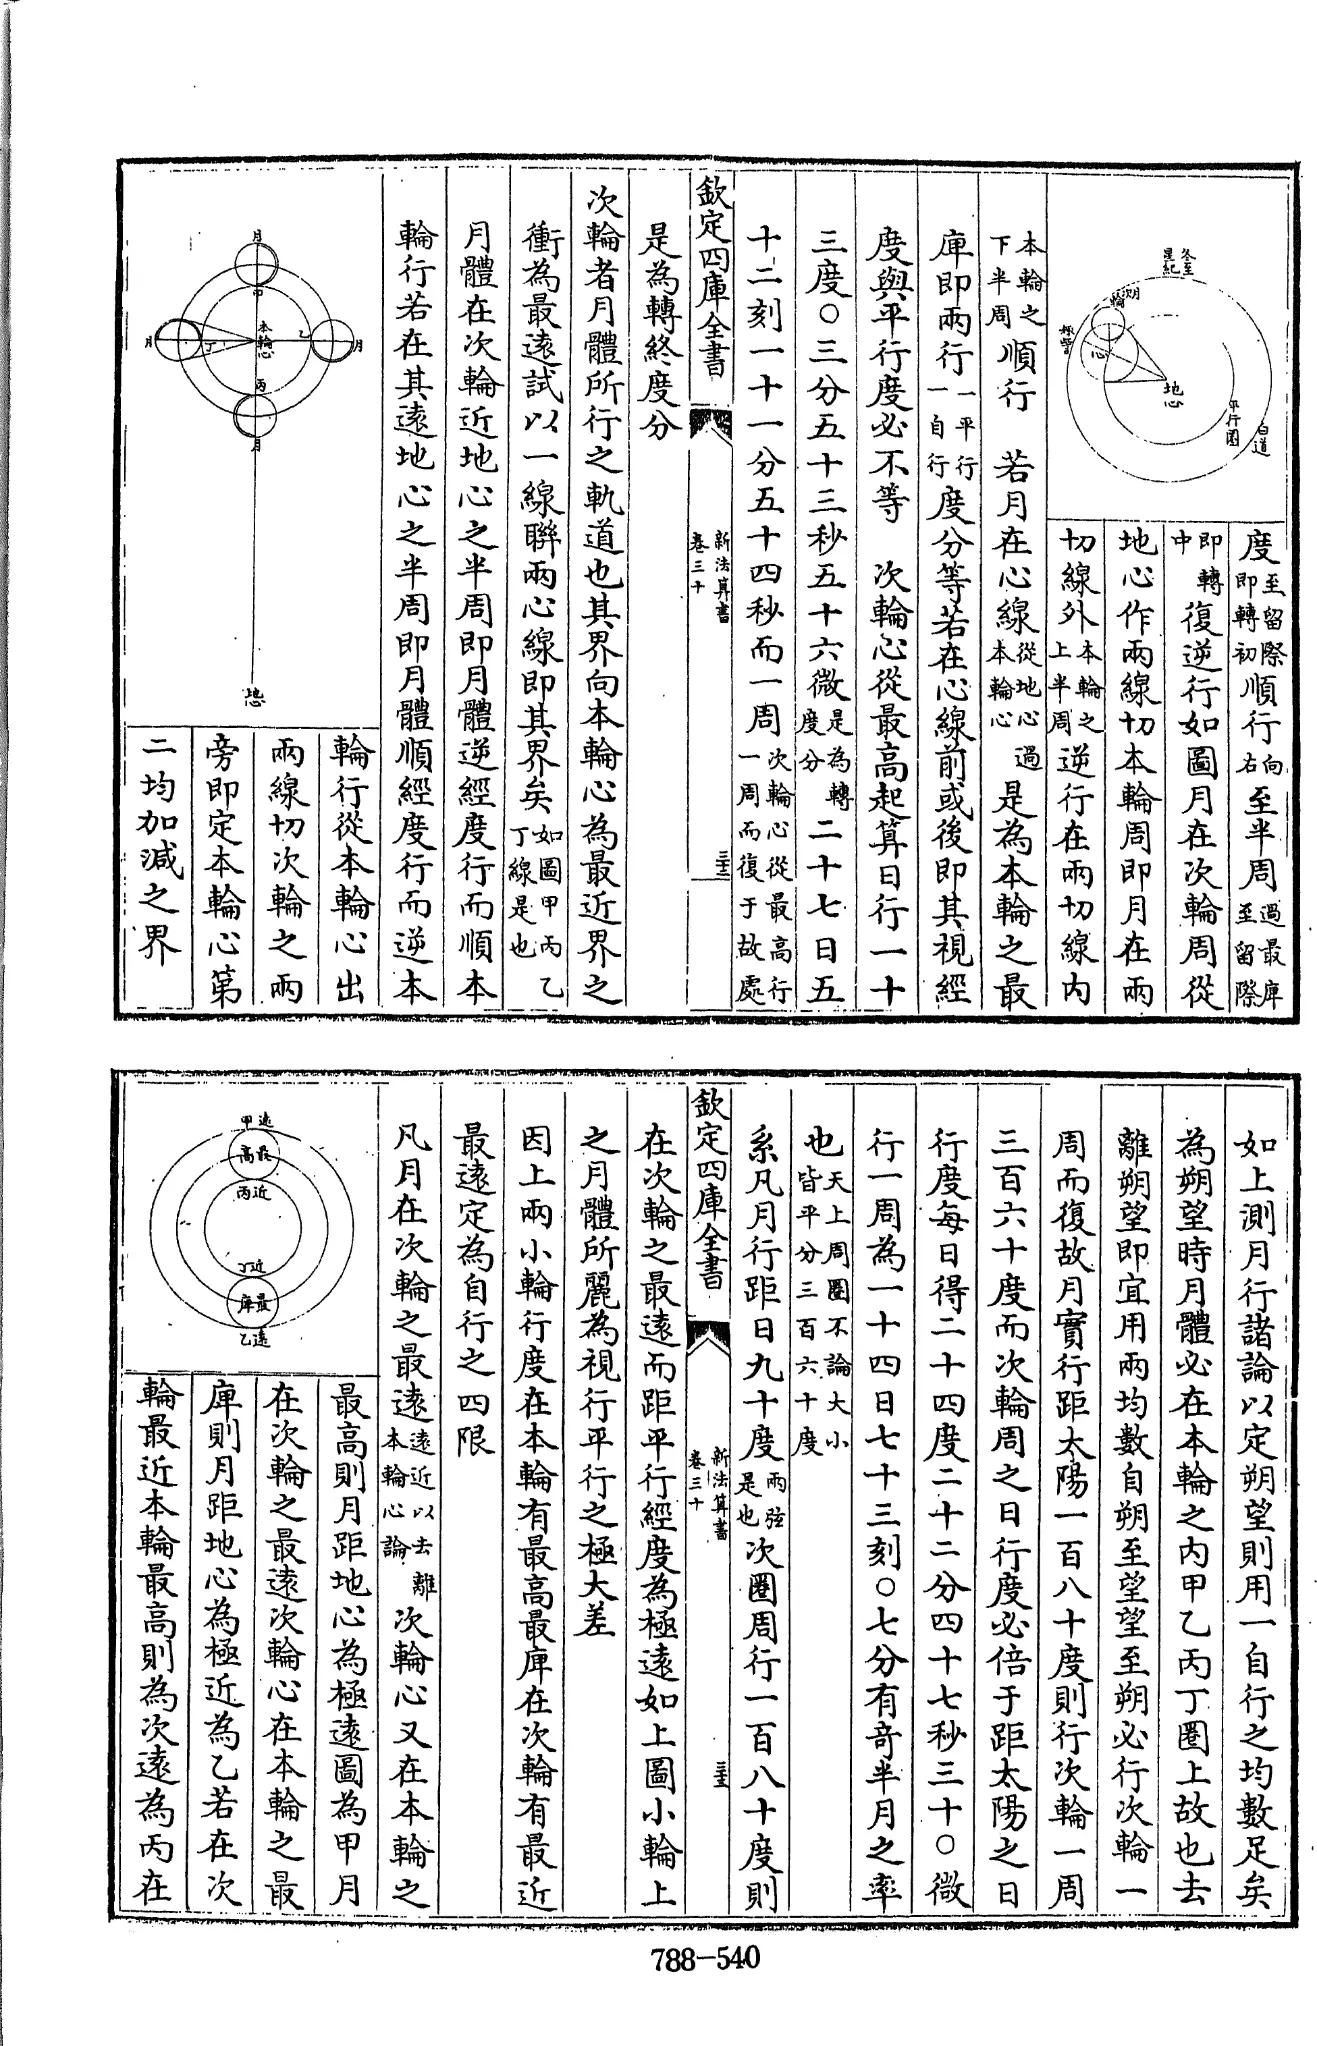 冬至
星紀
朔
輪
心
地心
平行圈
白道
度至留際即轉初順行向右至半周過最庳至留際
即轉中復逆行如圖月在次輪周從
地心作兩線切本輪周即月在兩
切線外本輪之上半周逆行在兩切線內
本輪之下半周順行 若月在心線從地心過本輪心是為本輪之最
庳即兩行一平行一自行度分等若在心線前或後即其視經
度與平行度必不等 次輪心從最高起算日行一十
三度○三分五十三秒五十六微是為轉度分二十七日五
十二刻一十一分五十四秒而一周次輪心從最高行一周而復于故處
欽定四庫全書
新法算書
卷三十
是為轉終度分
次輪者月體所行之軌道也其界向本輪心為最近界之
衝為最遠試以一線聯兩心線即其界矣如圖甲丙乙丁線是也
月體在次輪近地心之半周即月體逆經度行而順本
輪行若在其遠地心之半周即月體順經度行而逆本
月
甲
本輪心
乙
月
丁
月
丙
月
地心
輪行從本輪心出
兩線切次輪之兩
旁即定本輪心第
二均加減之界
如上測月行諸論以定朔望則用一自行之均數足矣
為朔望時月體必在本輪之內甲乙丙丁圈上故也去
離朔望即宜用兩均數自朔至望望至朔必行次輪一
周而復故月實行距太陽一百八十度則行次輪一周
三百六十度而次輪周之日行度必倍于距太陽之日
行度每日得二十四度二十二分四十七秒三十○微
行一周為一十四日七十三刻○七分有奇半月之率
也天上周圈不論大小皆平分三百六十度
系凡月行距日九十度兩弦是也次圈周行一百八十度則
欽定四庫全書
新法算書
卷三十
在次輪之最遠而距平行經度為極遠如上圖小輪上
之月體所麗為視行平行之極大差
因上兩小輪行度在本輪有最高最庳在次輪有最近
最遠定為自行之四限
凡月在次輪之最遠遠近以去離本輪心論次輪心又在本輪之
甲遠
最高
丙近
丁近
最庳
乙遠
最高則月距地心為極遠圖為甲月
在次輪之最遠次輪心在本輪之最
庳則月距地心為極近為乙若在次
輪最近本輪最高則為次遠為丙在
788-540